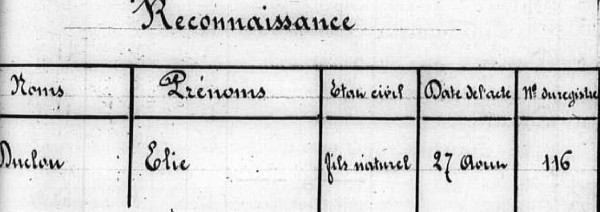 Reconnaissance
Noms Prénoms Etat civil Date de l'acte No. du registre
Duclou Elie fils naturel 27 Aout 116